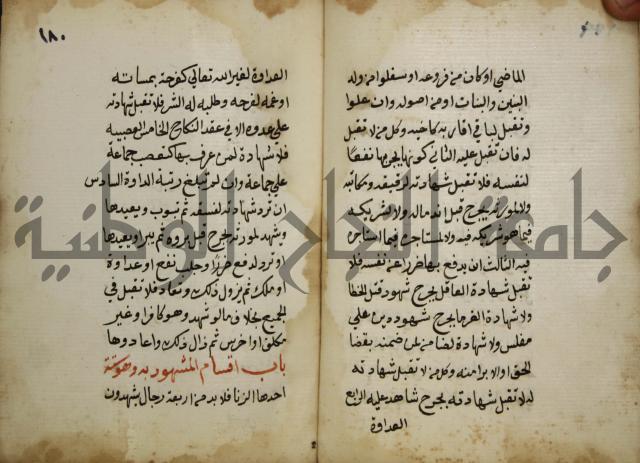 الماضي او كان من فروعه او سفلوا من ولد
البنين والبنات او من اصوله وان علوا
وتقبل لباقي اقاربه كاخيه وكل من لا تقبل
له فان تقبل عليه الثاني كونها يجر بها نفعا
لنفسه فلا تقبل شهادته لرقيقه ومكاتبه
ولا لمورثه بجرح قبل اندماله ولا لشريكه
فيما هو شريكه فيه ولا لمستاجره فيما استاجره
فيه الثالث ان يدفع بها ضررا عن نفسه فلا
تقبل شهادة العاقل بجرح شهود قتل الخطا
ولا شهادة الغرما بجرح شهود دين على
مفلس ولا شهادة الضامن لمن ضمنه بقضا
الحق او الابرا منه وكل من لا تقبل شهادته
له لا تقبل شهادته بجرح شاهد عليه الرابع
العداوة
١٨٠
العداوة لغير الله تعالى كفرحه بمساته
او غمه لفرحه وطلبه له الشر فلا تقبل شهادته
على عدوه الا في عقد النكاح الخامس العصبية
فلا شهادة لمن عرف بها كتعصب جماعة
على جماعة وان لم تبلغ رتبة العداوة السادس
ان ترد شهادته لفسقه ثم يتوب ويعيدها
او يشهد لمورثه بجرح قبل بروه ثم يبرا ويعيدها
او ترد لدفع ضرر او جلب نفع او عداوة
او ملك ثم يزول ذلك وتعاد فلا تقبل في
الجميع بخلاف ما لو شهد وهو كافر او غير
مكلف او اخرس ثم زال ذلك واعادوها
باب اقسام المشهود به وهو ستة
احدها الزنا فلا بد من اربعة رجال يشهدون
جامعة النجاح الوطنية